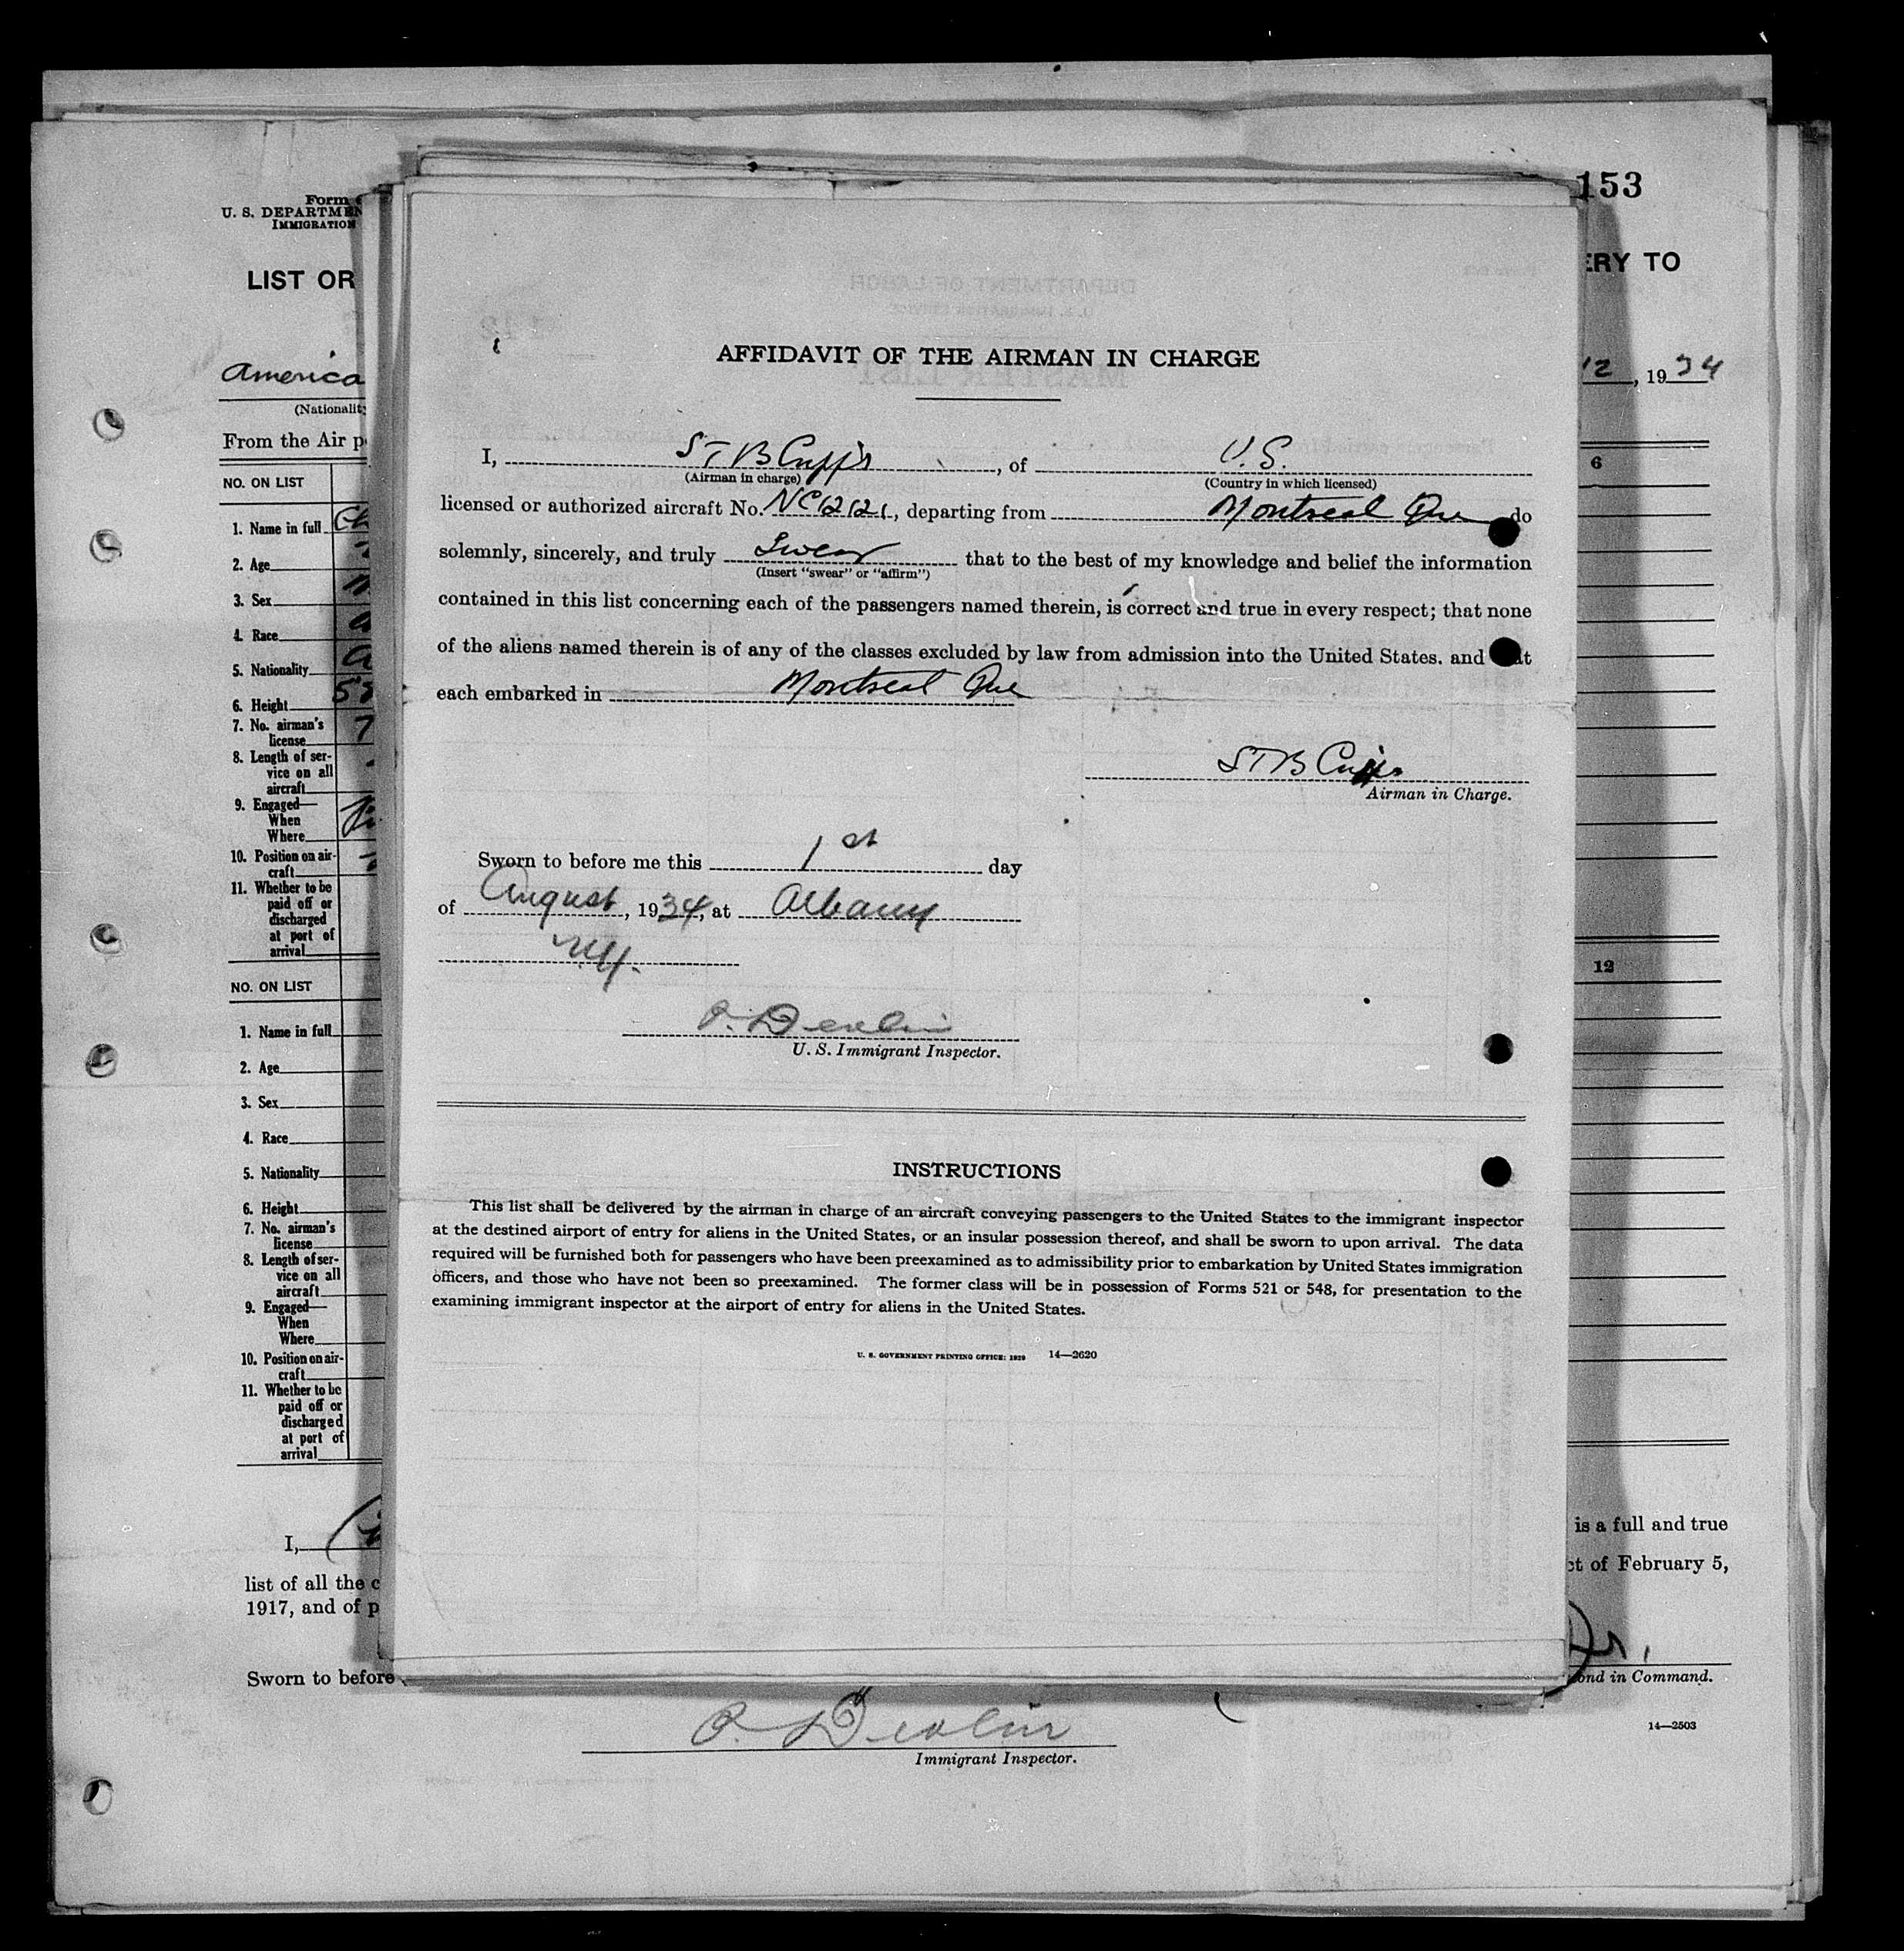 153
Form
U. S. DEPARTMEN
IMMIGRATION
LIST OR
ERY TO
America
12, 1934
(Nationality
From the Air p
NO. ON LIST
6
1. Name in full
2. Age
3. Sex
4. Race
5. Nationality
6. Height
7. No. airman's
license
8. Length of ser-
vice on all
aircraft
9. Engaged—
When
Where
10. Position on air-
craft
11. Whether to be
paid off or
discharged
at port of
arrival
NO. ON LIST
12
1. Name in full
2. Age
3. Sex
4. Race
5. Nationality
6. Height
7. No. airman's
license
8. Length of ser-
vice on all
aircraft
9. Engaged—
When
Where
10. Position on air-
craft
11. Whether to be
paid off or
discharged
at port of
arrival
I,
is a full and true
list of all the c
ct of February 5,
1917, and of p
Sworn to before
ond in Command.
Immigrant Inspector.
14—2503
AFFIDAVIT OF THE AIRMAN IN CHARGE
I, STB Cripps, of U.S.
(Airman in charge) (Country in which licensed)
licensed or authorized aircraft No. NC12121, departing from Montreal Que do
solemnly, sincerely, and truly Swear that to the best of my knowledge and belief the information
(Insert "swear" or "affirm")
contained in this list concerning each of the passengers named therein, is correct and true in every respect; that none
of the aliens named therein is of any of the classes excluded by law from admission into the United States. and at
each embarked in Montreal Que
STB Cripps
Airman in Charge.
Sworn to before me this 1st day
of August, 1934, at Albany
N.Y.
P. Devlin
U. S. Immigrant Inspector.
INSTRUCTIONS
This list shall be delivered by the airman in charge of an aircraft conveying passengers to the United States to the immigrant inspector
at the destined airport of entry for aliens in the United States, or an insular possession thereof, and shall be sworn to upon arrival. The data
required will be furnished both for passengers who have been preexamined as to admissibility prior to embarkation by United States immigration
officers, and those who have not been so preexamined. The former class will be in possession of Forms 521 or 548, for presentation to the
examining immigrant inspector at the airport of entry for aliens in the United States.
U. S. GOVERNMENT PRINTING OFFICE: 1929 14—2620